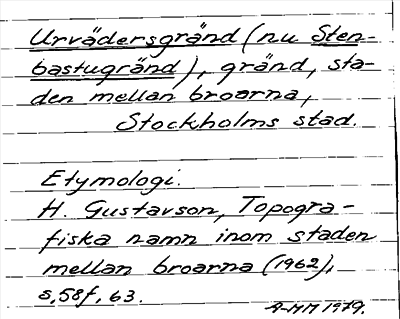 Urvädersgränd (nu Sten-
bastugränd), gränd, sta-
den mellan broarna,
Stockholms stad.
Etymologi.
H. Gustavson, Topogra-
fiska namn inom staden
mellan broarna (1962),
s, 58f, 63.
A-MM 1979.